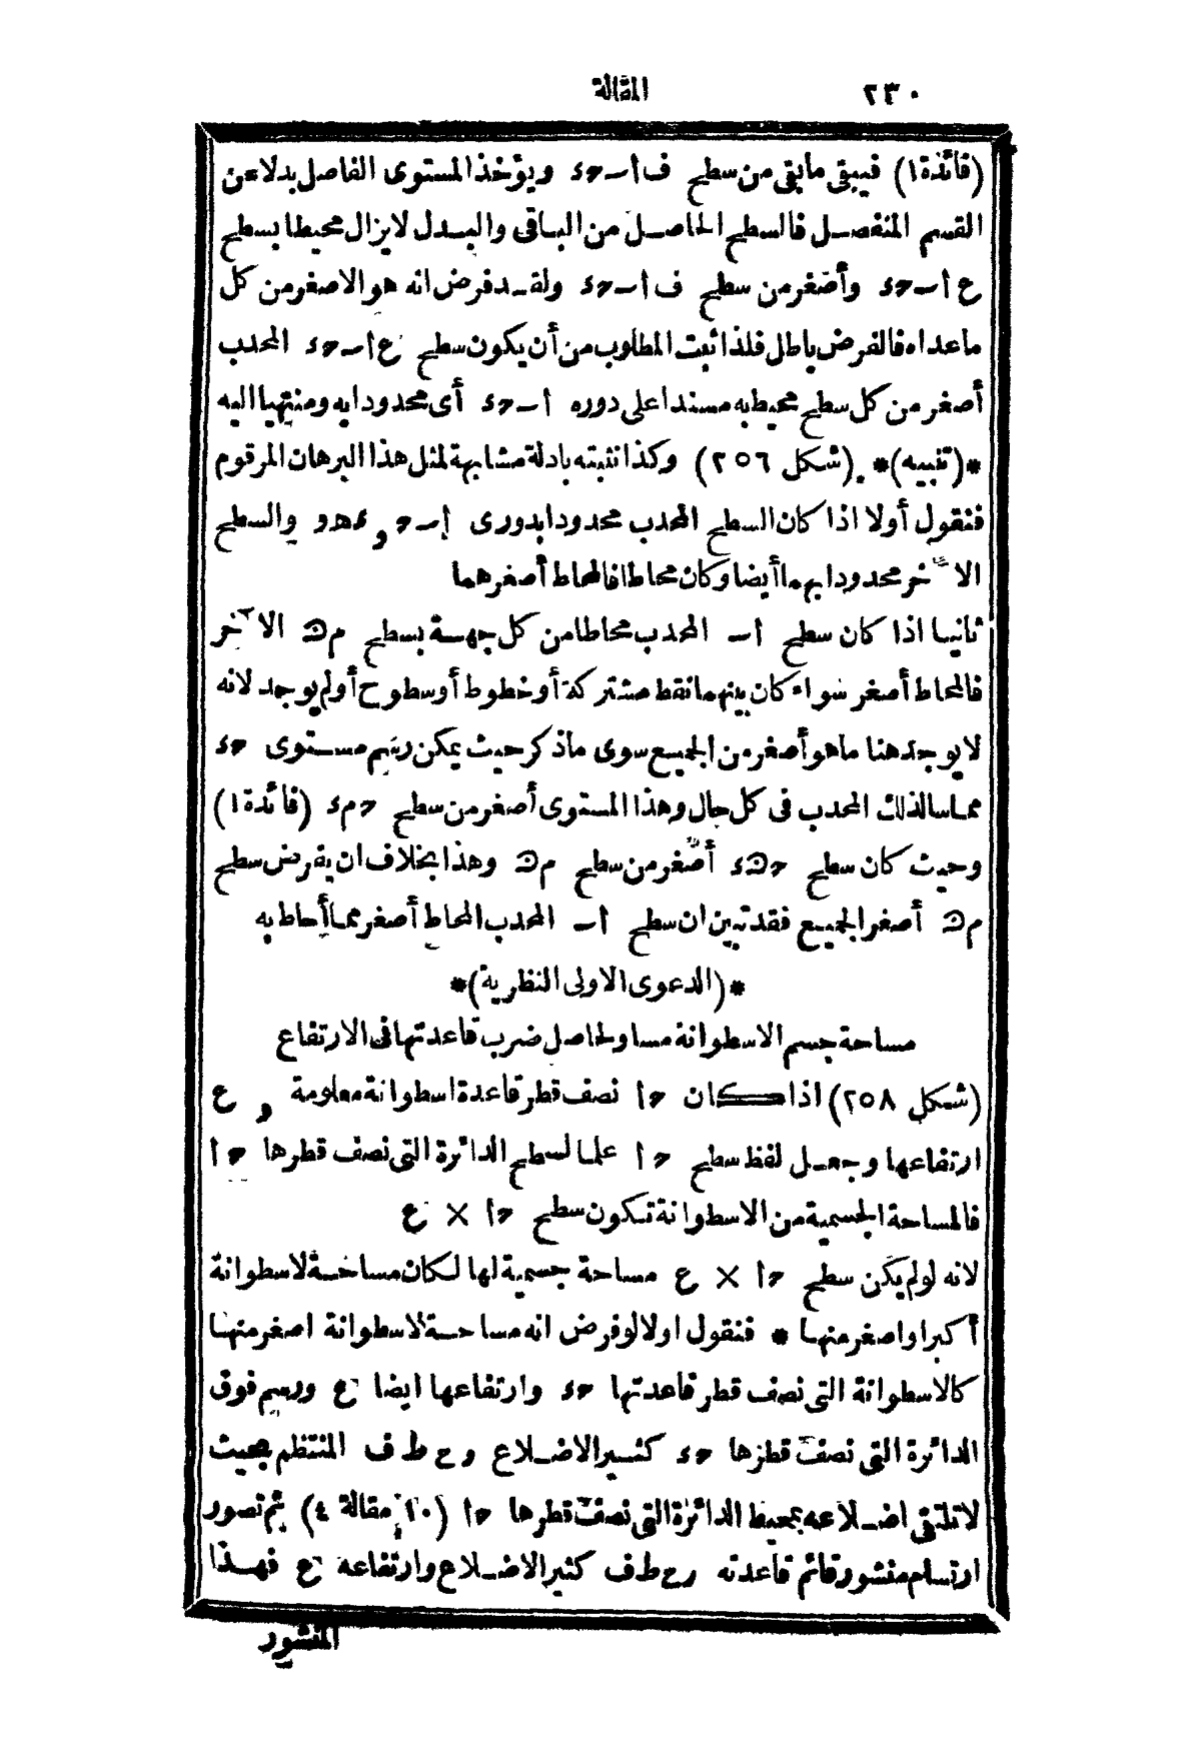 ٢٣٠ المقالة
(فائدة ١) فيبقى مابقى من سطح ف ا ـ ح ء ويؤخذ المستوى الفاصل بدلا عن
القسم المنفصل فالسطح الحاصل من الباقى والبدل لايزال محيطا بسطح
ع ا ـ ح ء وأصغر من سطح ف ا ـ ح ء ولقد فرض انه هو الاصغر من كل
ماعداه فالفرض باطل فلذا ثبت المطلوب من أن يكون سطح ع ا ـ ح ء المحدب
أصغر من كل سطح محيط به مسندا على دوره ا ـ ح ء أى محدودا به ومنتهيا اليه
*(تنبيه)* (شكل ٢٥٦) وكذا نثبته بادلة مشابهة لمثل هذا البرهان المرقوم
فنقول أولا اذا كان السطح المحدب محدودا بدورى ا ـ ح و ء ه و والسطح
الآخر محدودا بهما أيضا وكان محاطا فالمحاط أصغرهما
ثانيا اذا كان سطح ا ـ المحدب محاطا من كل جهة بسطح م ن الآخر
فالمحاط أصغر سواء كان بينهما نقط مشتركة أو خطوط أو سطوح أو لم يوجد لانه
لا يوجد هنا ماهو أصغر من الجميع سوى ماذكر حيث يمكن رسم مستوى ح ء
مماسا لذلك المحدب فى كل حال وهذا المستوى أصغر من سطح ح م ء (فائدة ١)
وحيث كان سطح ح ن ء أصغر من سطح م ن وهذا بخلاف ان يفرض سطح
م ن أصغر الجميع فقد تبين ان سطح ا ـ المحدب المحاط أصغر مما أحاط به
*(الدعوى الاولى النظرية)*
مساحة جسم الاسطوانة مساو لحاصل ضرب قاعدتها فى الارتفاع
(شكل ٢٥٨) اذا كان ح ا نصف قطر قاعدة اسطوانة معلومة و ع
ارتفاعها وجعل لفظ سطح ح ا علما لسطح الدائرة التى نصف قطرها ح ا
فالمساحة الجسمية من الاسطوانة تكون سطح ح ا × ع
لانه لو لم يكن سطح ح ا × ع مساحة جسمية لها لكان مساحة لاسطوانة
أكبر او اصغر منها * فنقول اولا لو فرض انه مساحة لاسطوانة اصغر منها
كالاسطوانة التى نصف قطر قاعدتها ح ء وارتفاعها ايضا ع ورسم فوق
الدائرة التى نصف قطرها ح ء كثير الاضلاع و ح ط ف المنتظم بحيث
لا تلتقى اضلاعه بمحيط الدائرة التى نصف قطرها ح ا (١٠ مقالة ٤) ثم تصور
ارتسام منشور قائم قاعدته ر ح ط ف كثير الاضلاع وارتفاعه ع فهذا
المنشور